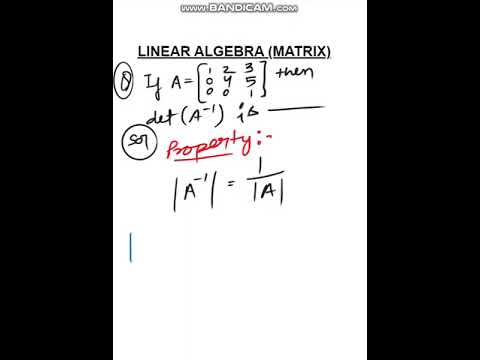 www.BANDICAM.com
LINEAR ALGEBRA (MATRIX)
Q If A = [1 2 3
0 4 5
0 0 1] then
det (A⁻¹) is ———
Sol Property :-
|A⁻¹| = 1/|A|